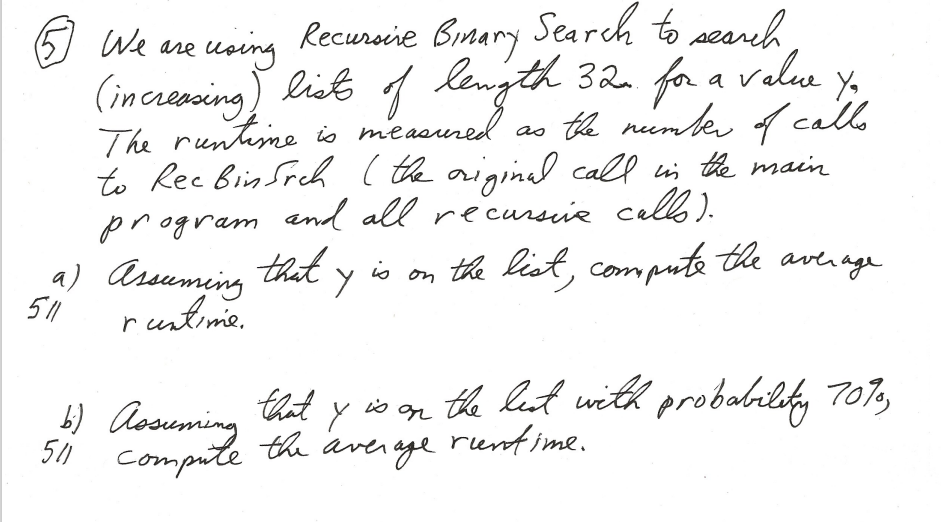 ⑤ We are using Recursive Binary Search to search
(increasing) lists of length 32 for a value y.
The runtime is measured as the number of calls
to RecBinSrch (the original call in the main
program and all recursive calls).
a) Assuming that y is on the list, compute the average
5// runtime.
b) Assuming that y is on the list with probability 70%,
5// compute the average runtime.